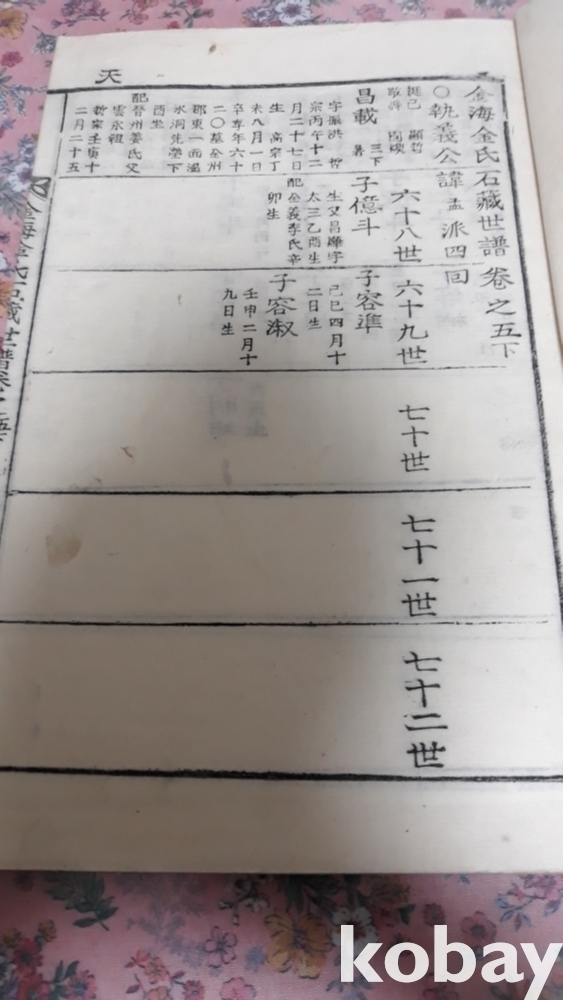 天
金海金氏石藏世譜卷之五下
〇執義公諱孟派四回
六十八世
六十九世
七十世
七十一世
七十二世
昌載
三下
字振洪 哲
宗丙午十二
月二十七日
生 高宗丁
未八月一日
卒享年六十
二〇墓全州
郡東一面
氷洞先塋下
酉坐
配晉州姜氏父
雲永祖
哲宗壬寅十
二月二十五
子億斗
生父昌 字
太三乙酉生
配全義李氏辛
卯生
子容準
己巳四月十
二日生
子容淑
壬申二月十
九日生
金海金氏石藏世譜卷之五下
kobay